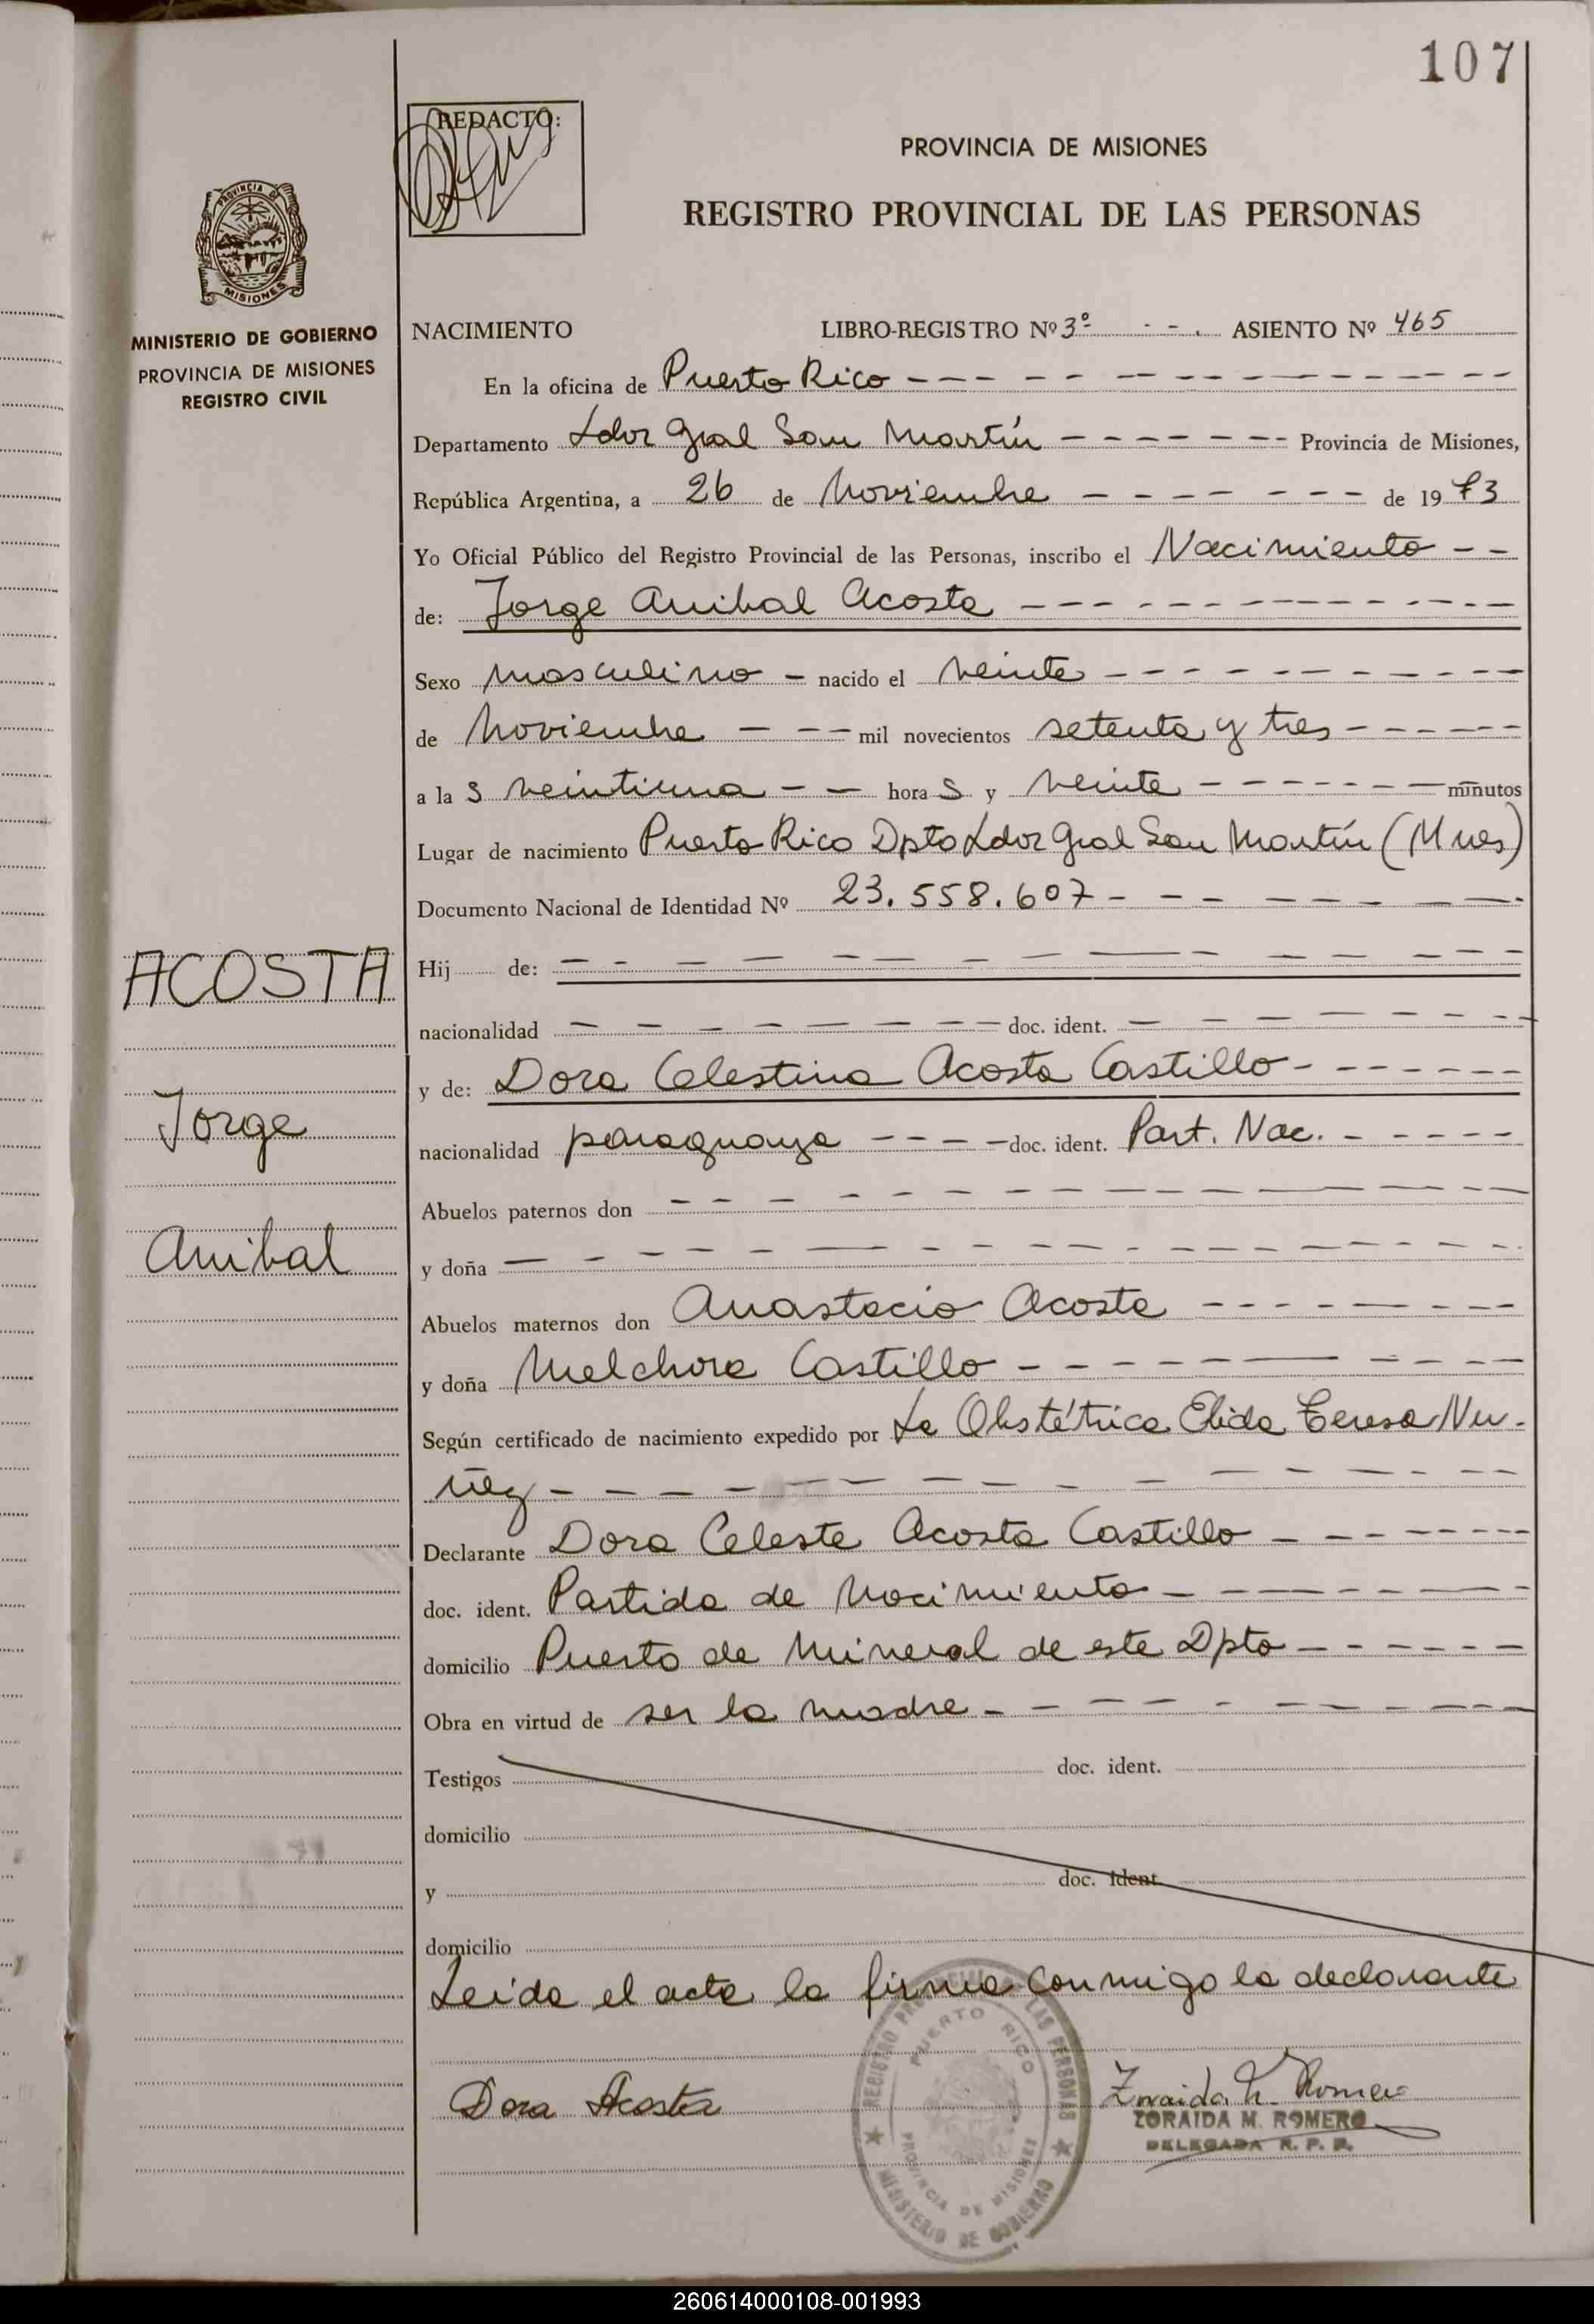 107
REDACTO:
PROVINCIA DE MISIONES
REGISTRO PROVINCIAL DE LAS PERSONAS
PROVINCIA DE
MISIONES
MINISTERIO DE GOBIERNO
PROVINCIA DE MISIONES
REGISTRO CIVIL
NACIMIENTO LIBRO-REGISTRO Nº 3º - - . ASIENTO Nº 465
En la oficina de Puerto Rico
Departamento Ldor Gral San Martín Provincia de Misiones,
República Argentina, a 26 de Noviembre de 1973
Yo Oficial Público del Registro Provincial de las Personas, inscribo el Nacimiento
de: Jorge Anibal Acosta
Sexo masculino nacido el veinte
de Noviembre mil novecientos setenta y tres
a las veintiuna horas y veinte minutos
Lugar de nacimiento Puerto Rico Dpto Ldor Gral San Martín (Mnes)
Documento Nacional de Identidad Nº 23.558.607
ACOSTA
Hij de:
nacionalidad doc. ident.
y de: Dora Celestina Acosta Castillo
Jorge
nacionalidad paraguaya doc. ident. Part. Nac.
Abuelos paternos don
Anibal
y doña
Abuelos maternos don Anastacio Acosta
y doña Melchora Castillo
Según certificado de nacimiento expedido por La Obstétrica Elida Teresa Nu-
ñez
Declarante Dora Celeste Acosta Castillo
doc. ident. Partida de Nacimiento
domicilio Puerto de Mineral de este Dpto
Obra en virtud de ser la madre
Testigos doc. ident.
domicilio
y doc. ident.
domicilio
Leida el acta la firma conmigo la declarante
Dora Acosta
Zoraida M. Romero
ZORAIDA M. ROMERO
DELEGADA R. P. P.
REGISTRO PROVINCIAL DE LAS PERSONAS
PUERTO RICO
PROVINCIA DE MISIONES
MINISTERIO DE GOBIERNO
260614000108-001993